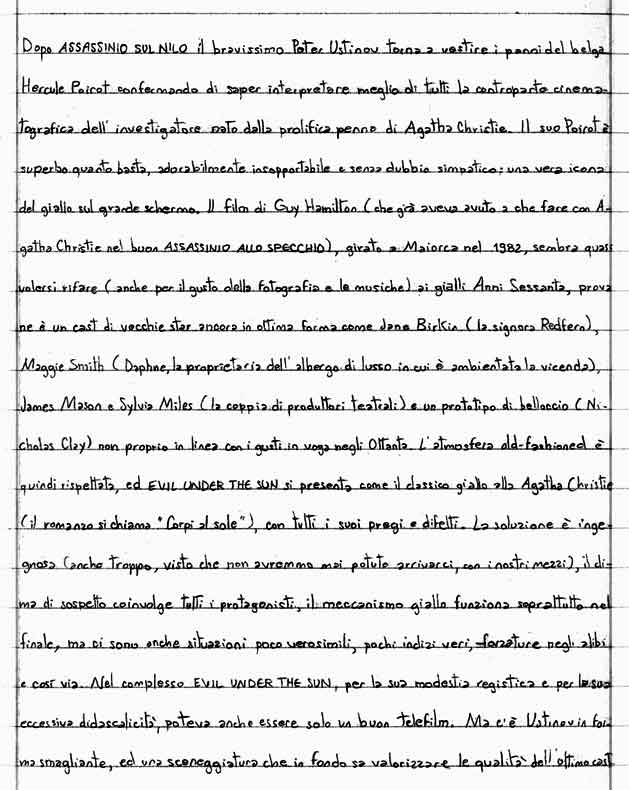 Dopo ASSASSINIO SUL NILO il bravissimo Peter Ustinov torna a vestire i panni del belga
Hercule Poirot confermando di saper interpretare meglio di tutti la controparte cinema-
tografica dell'investigatore nato dalla prolifica penna di Agatha Christie. Il suo Poirot è
superbo quanto basta, adorabilmente insopportabile e senza dubbio simpatico: una vera icona
del giallo sul grande schermo. Il film di Guy Hamilton (che già aveva avuto a che fare con A-
gatha Christie nel buon ASSASSINIO ALLO SPECCHIO), girato a Maiorca nel 1982, sembra quasi
volersi rifare (anche per il gusto della fotografia e le musiche) ai gialli Anni Sessanta, prova
ne è un cast di vecchie star ancora in ottima forma come Jane Birkin (la signora Redfern),
Maggie Smith (Daphne, la proprietaria dell'albergo di lusso in cui è ambientata la vicenda),
James Mason e Sylvia Miles (la coppia di produttori teatrali) e un prototipo di belloccio (Ni-
cholas Clay) non proprio in linea con i gusti in voga negli Ottanta. L'atmosfera old-fashioned è
quindi rispettata, ed EVIL UNDER THE SUN si presenta come il classico giallo alla Agatha Christie
(il romanzo si chiama "Corpi al sole"), con tutti i suoi pregi e difetti. La soluzione è inge-
gnosa (anche troppo, visto che non avremmo mai potuto arrivarci, con i nostri mezzi), il cli-
ma di sospetto coinvolge tutti i protagonisti, il meccanismo giallo funziona soprattutto nel
finale, ma ci sono anche situazioni poco verosimili, pochi indizi veri, forzature negli alibi
e così via. Nel complesso EVIL UNDER THE SUN, per la sua modestia registica e per la sua
eccessiva didascalicità, poteva anche essere solo un buon telefilm. Ma c'è Ustinov in for-
ma smagliante, ed una sceneggiatura che in fondo sa valorizzare le qualità dell'ottimo cast